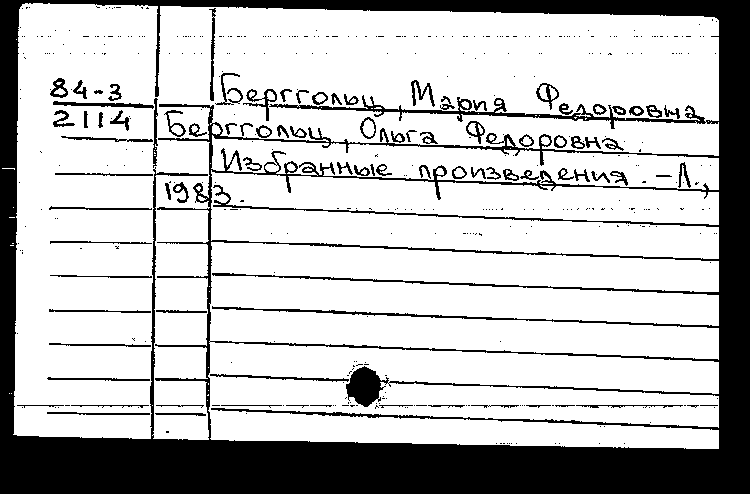 84-3 Берггольц, Мария Федоровна
2114 Берггольц, Ольга Федоровна.
Избранные произведения. - Л.,
1983.